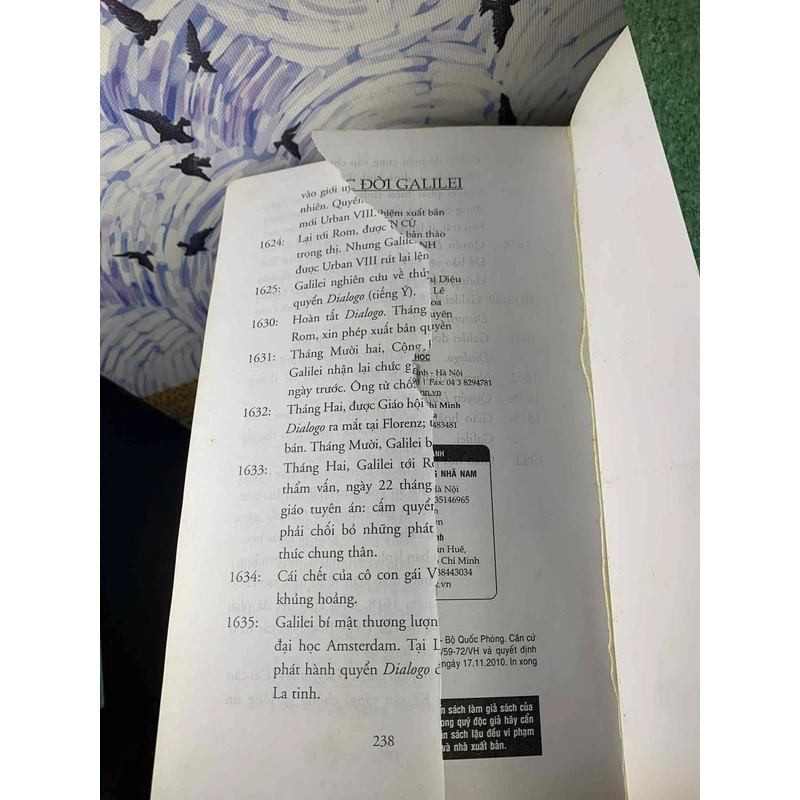 C ĐỜI GALILEI
vào giới
nhiên. Quyển
mới Urban VIII.
1624: Lại tới Rom, được
trọng thị. Nhưng Galile
được Urban VIII rút lại lện
1625: Galilei nghiên cứu về thủy
quyển Dialogo (tiếng Ý).
1630: Hoàn tất Dialogo. Tháng
Rom, xin phép xuất bản quyển
1631: Tháng Mười hai, Cộng
Galilei nhận lại chức g
ngày trước. Ông từ chối
1632: Tháng Hai, được Giáo hội
Dialogo ra mắt tại Florenz; t
bán. Tháng Mười, Galilei b
1633: Tháng Hai, Galilei tới R
thẩm vấn, ngày 22 tháng
giáo tuyên án: cấm quyển
phải chối bỏ những phát
thức chung thân.
1634: Cái chết của cô con gái V
khủng hoảng.
1635: Galilei bí mật thương lượn
đại học Amsterdam. Tại L
phát hành quyển Dialogo
La tinh.
238
hiệm xuất bản
N CỪ
bản thảo
NH
Diệu
Lê
oa
uyên
HỌC
- Hà Nội
| Fax: 04 3 8294781
hn.vn
Chí Minh
483481
ANH
G NHÃ NAM
Hà Nội
35146965
vn
nh
n Huê,
Chí Minh
38443034
.vn
- Bộ Quốc Phòng. Căn cứ
/59-72/VH và quyết định
ngày 17.11.2010. In xong
n sách làm giả sách của
ong quý độc giả hãy cẩn
n sách lậu đều vi phạm
và nhà xuất bản.